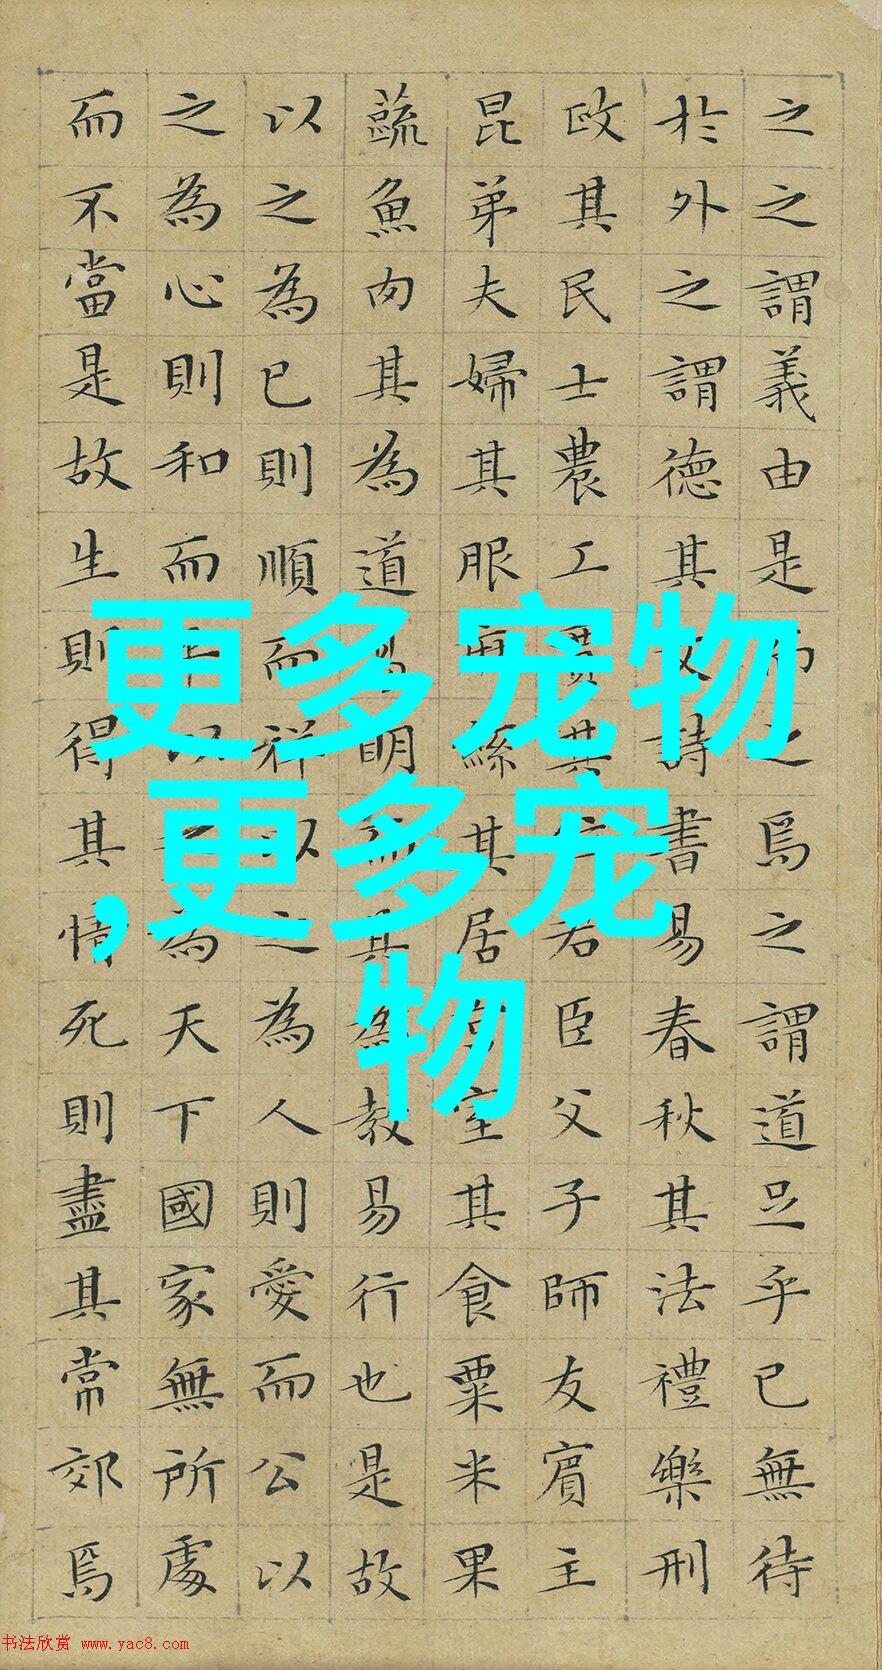 之之謂義由是而之焉之謂道足乎已無待
於外之謂德其文詩書易春秋其法禮樂刑
政其民士農工賈其位君臣父子師友賓主
昆弟夫婦其服麻絲其居宮室其食粟米果
蔬魚肉其為道易明而其為教易行也是故
以之為已則順而祥以之為人則愛而公以
之為心則和而平以之為天下國家無所處
而不當是故生則得其情死則盡其常郊焉
更多宠物
,更多宠
物
书法欣赏 www.yac8.com